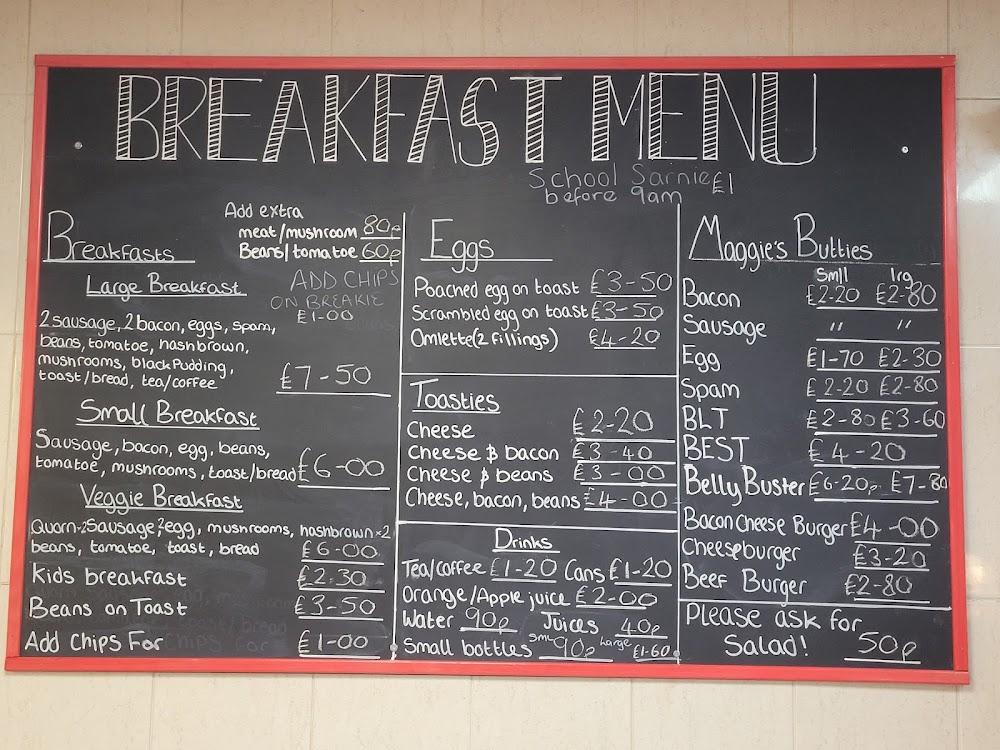 BREAKFAST MENU
School Sarnie £1
before 9am
Add extra
meat/mushroom 80p
Beans/tomatoe 60p
Breakfasts
ADD CHIPS
ON BREAKIE
£1-00
Large Breakfast
2 sausage, 2 bacon, eggs, spam,
beans, tomatoe, hashbrown,
mushrooms, black pudding,
toast/bread, tea/coffee £7-50
Small Breakfast
Sausage, bacon, egg, beans,
tomatoe, mushrooms, toast/bread £6-00
Veggie Breakfast
Quorn-2 Sausage, 2 egg, mushrooms, hashbrown x2
beans, tomatoe, toast, bread £6-00
Kids breakfast £2.30
Beans on Toast £3-50
Add Chips For £1-00
Eggs
Poached egg on toast £3-50
Scrambled egg on toast £3-50
Omlette (2 fillings) £4-20
Toasties
Cheese £2-20
Cheese & bacon £3-40
Cheese & beans £3-00
Cheese, bacon, beans £4-00
Drinks
Tea/coffee £1-20 Cans £1-20
Orange/Apple juice £2-00
Water 90p Juices 40p
Small bottles sml 90p Large £1-60
Maggie's Butties
Smll lrg
Bacon £2-20 £2-80
Sausage " "
Egg £1-70 £2-30
Spam £2-20 £2-80
BLT £2-80 £3-60
BEST £4-20
Belly Buster £6-20p £7-80
Bacon Cheese Burger £4-00
Cheeseburger £3-20
Beef Burger £2-80
Please ask for
Salad! 50p